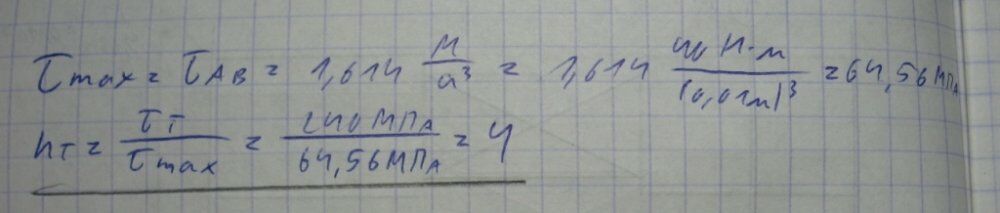 τmax = τAB = 1,614 M/a³ = 1,614 40 Н·м/(0,01м)³ = 64,56 МПа
nТ = τТ/τmax = 240 МПа/64,56 МПа = 4